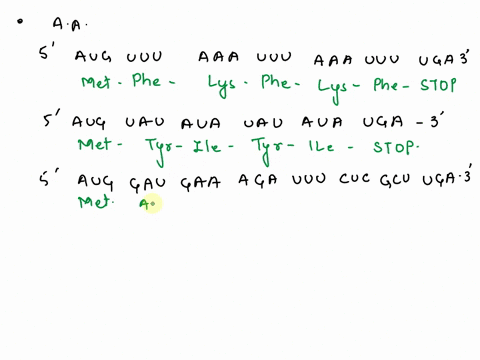 • A.A.
5' AUG UUU AAA UUU AAA UUU UGA 3'
Met - Phe - Lys - Phe - Lys - Phe - STOP
5' AUG UAU AUA UAU AUA UGA - 3'
Met - Tyr - Ile - Tyr - ILe - STOP.
5' AUG GAU GAA AGA UUU CUC GCU UGA. 3'
Met. A